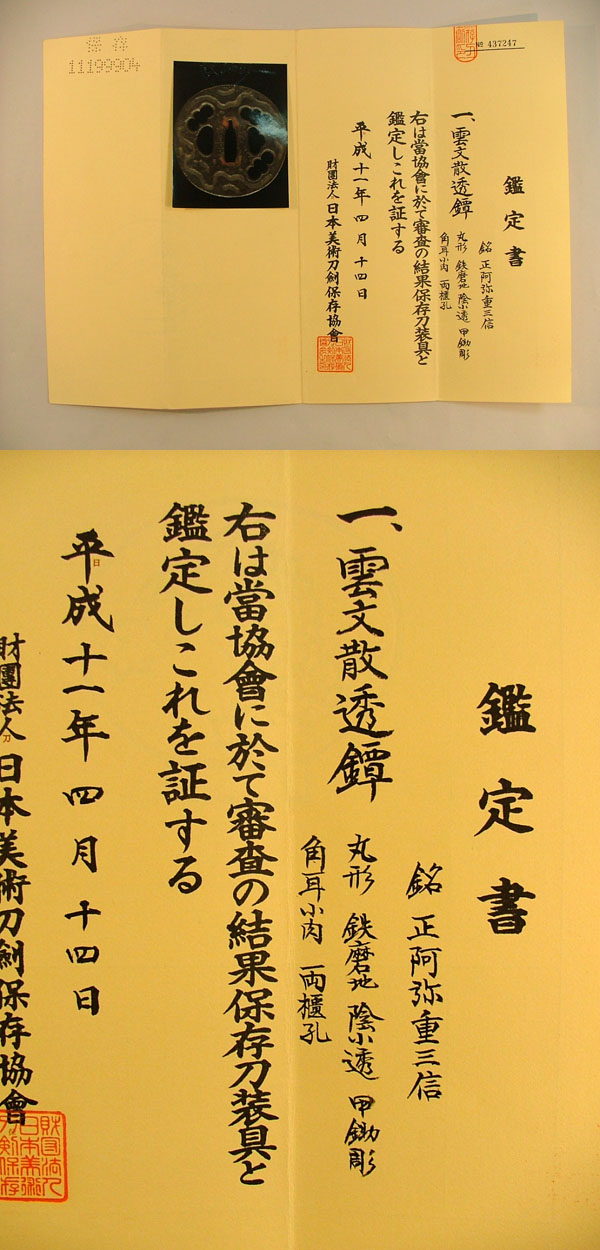 保存
11199904
No 437247
鑑定書
銘 正阿弥重三信
一、雲文散透鐔
丸形 鉄磨地 陰小透 甲鋤彫
角耳小肉 両櫃孔
右は當協會に於て審査の結果保存刀装具と
鑑定しこれを証する
平成十一年四月十四日
財團法人日本美術刀劍保存協會
鑑定書
銘 正阿弥重三信
一、雲文散透鐔
丸形 鉄磨地 陰小透 甲鋤彫
角耳小肉 両櫃孔
右は當協會に於て審査の結果保存刀装具と
鑑定しこれを証する
平成十一年四月十四日
財團法人日本美術刀劍保存協會